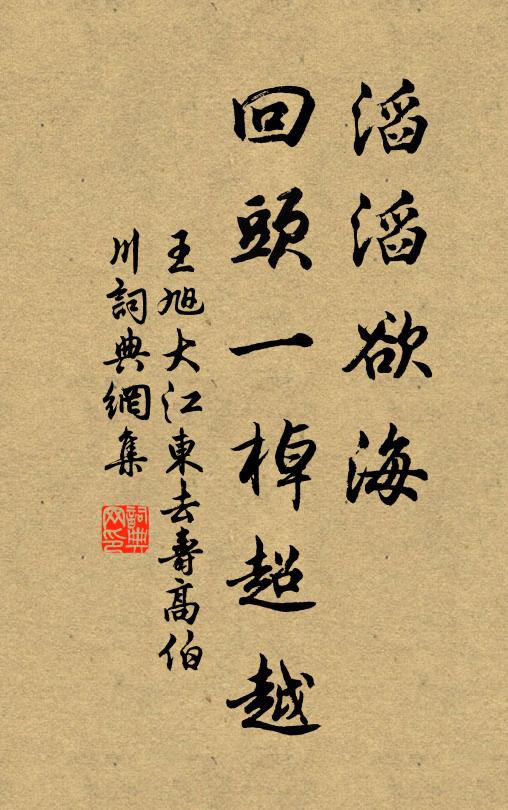 滔滔欲海
回頭一棹超越
王旭大江東去壽高伯
川詞典網集
詞典
网印